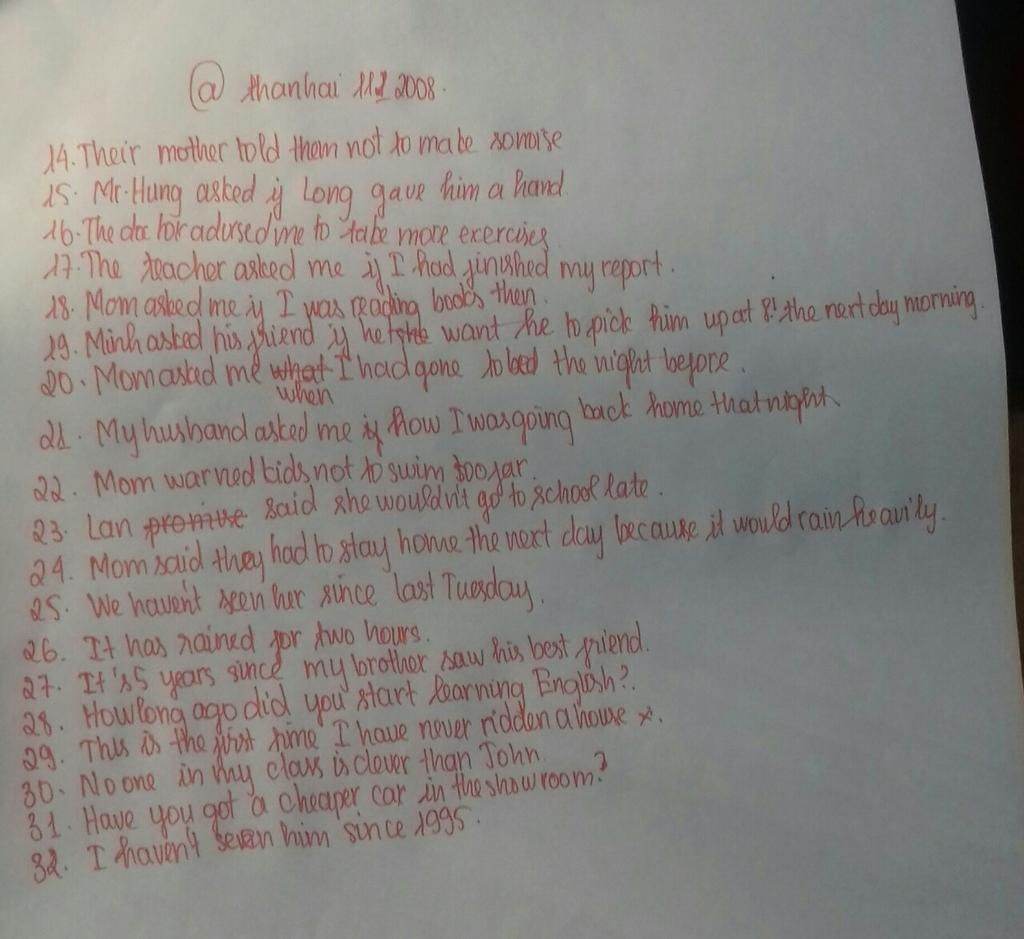 @ thanhai 112 2008.
14. Their mother told them not to make so noise
15. Mr. Hung asked if Long gave him a hand.
16. The doctor advised me to take more exercises
17. The teacher asked me if I had finished my report.
18. Mom asked me if I was reading books then.
19. Minh asked his friend if he want he to pick him up at 8! the next day morning.
20. Mom asked me what when I had gone to bed the night before.
21. My husband asked me if how I was going back home that night
22. Mom warned kids not to swim too far.
23. Lan promise said she wouldn't go to school late.
24. Mom said they had to stay home the next day because it would rain heavily.
25. We haven't seen her since last Tuesday.
26. It has rained for two hours.
27. It's 5 years since my brother saw his best friend.
28. How long ago did you start learning English?
29. This is the first time I have never ridden a house x.
30. No one in my class is clever than John.
31. Have you got a cheaper car in the showroom?
32. I haven't seven him since 1995.